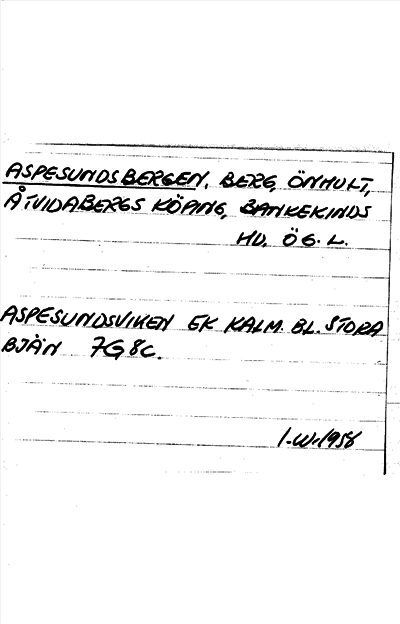 ASPESUNDSBERGEN, BERG, ÖNHULT,
ÅTVIDABERGS KÖPING, BANKEKINDS
HD, ÖG. L.
ASPESUNDSVIKEN EK KALM. BL. STORA
BJÄN 7G8C.
I.W. 1958